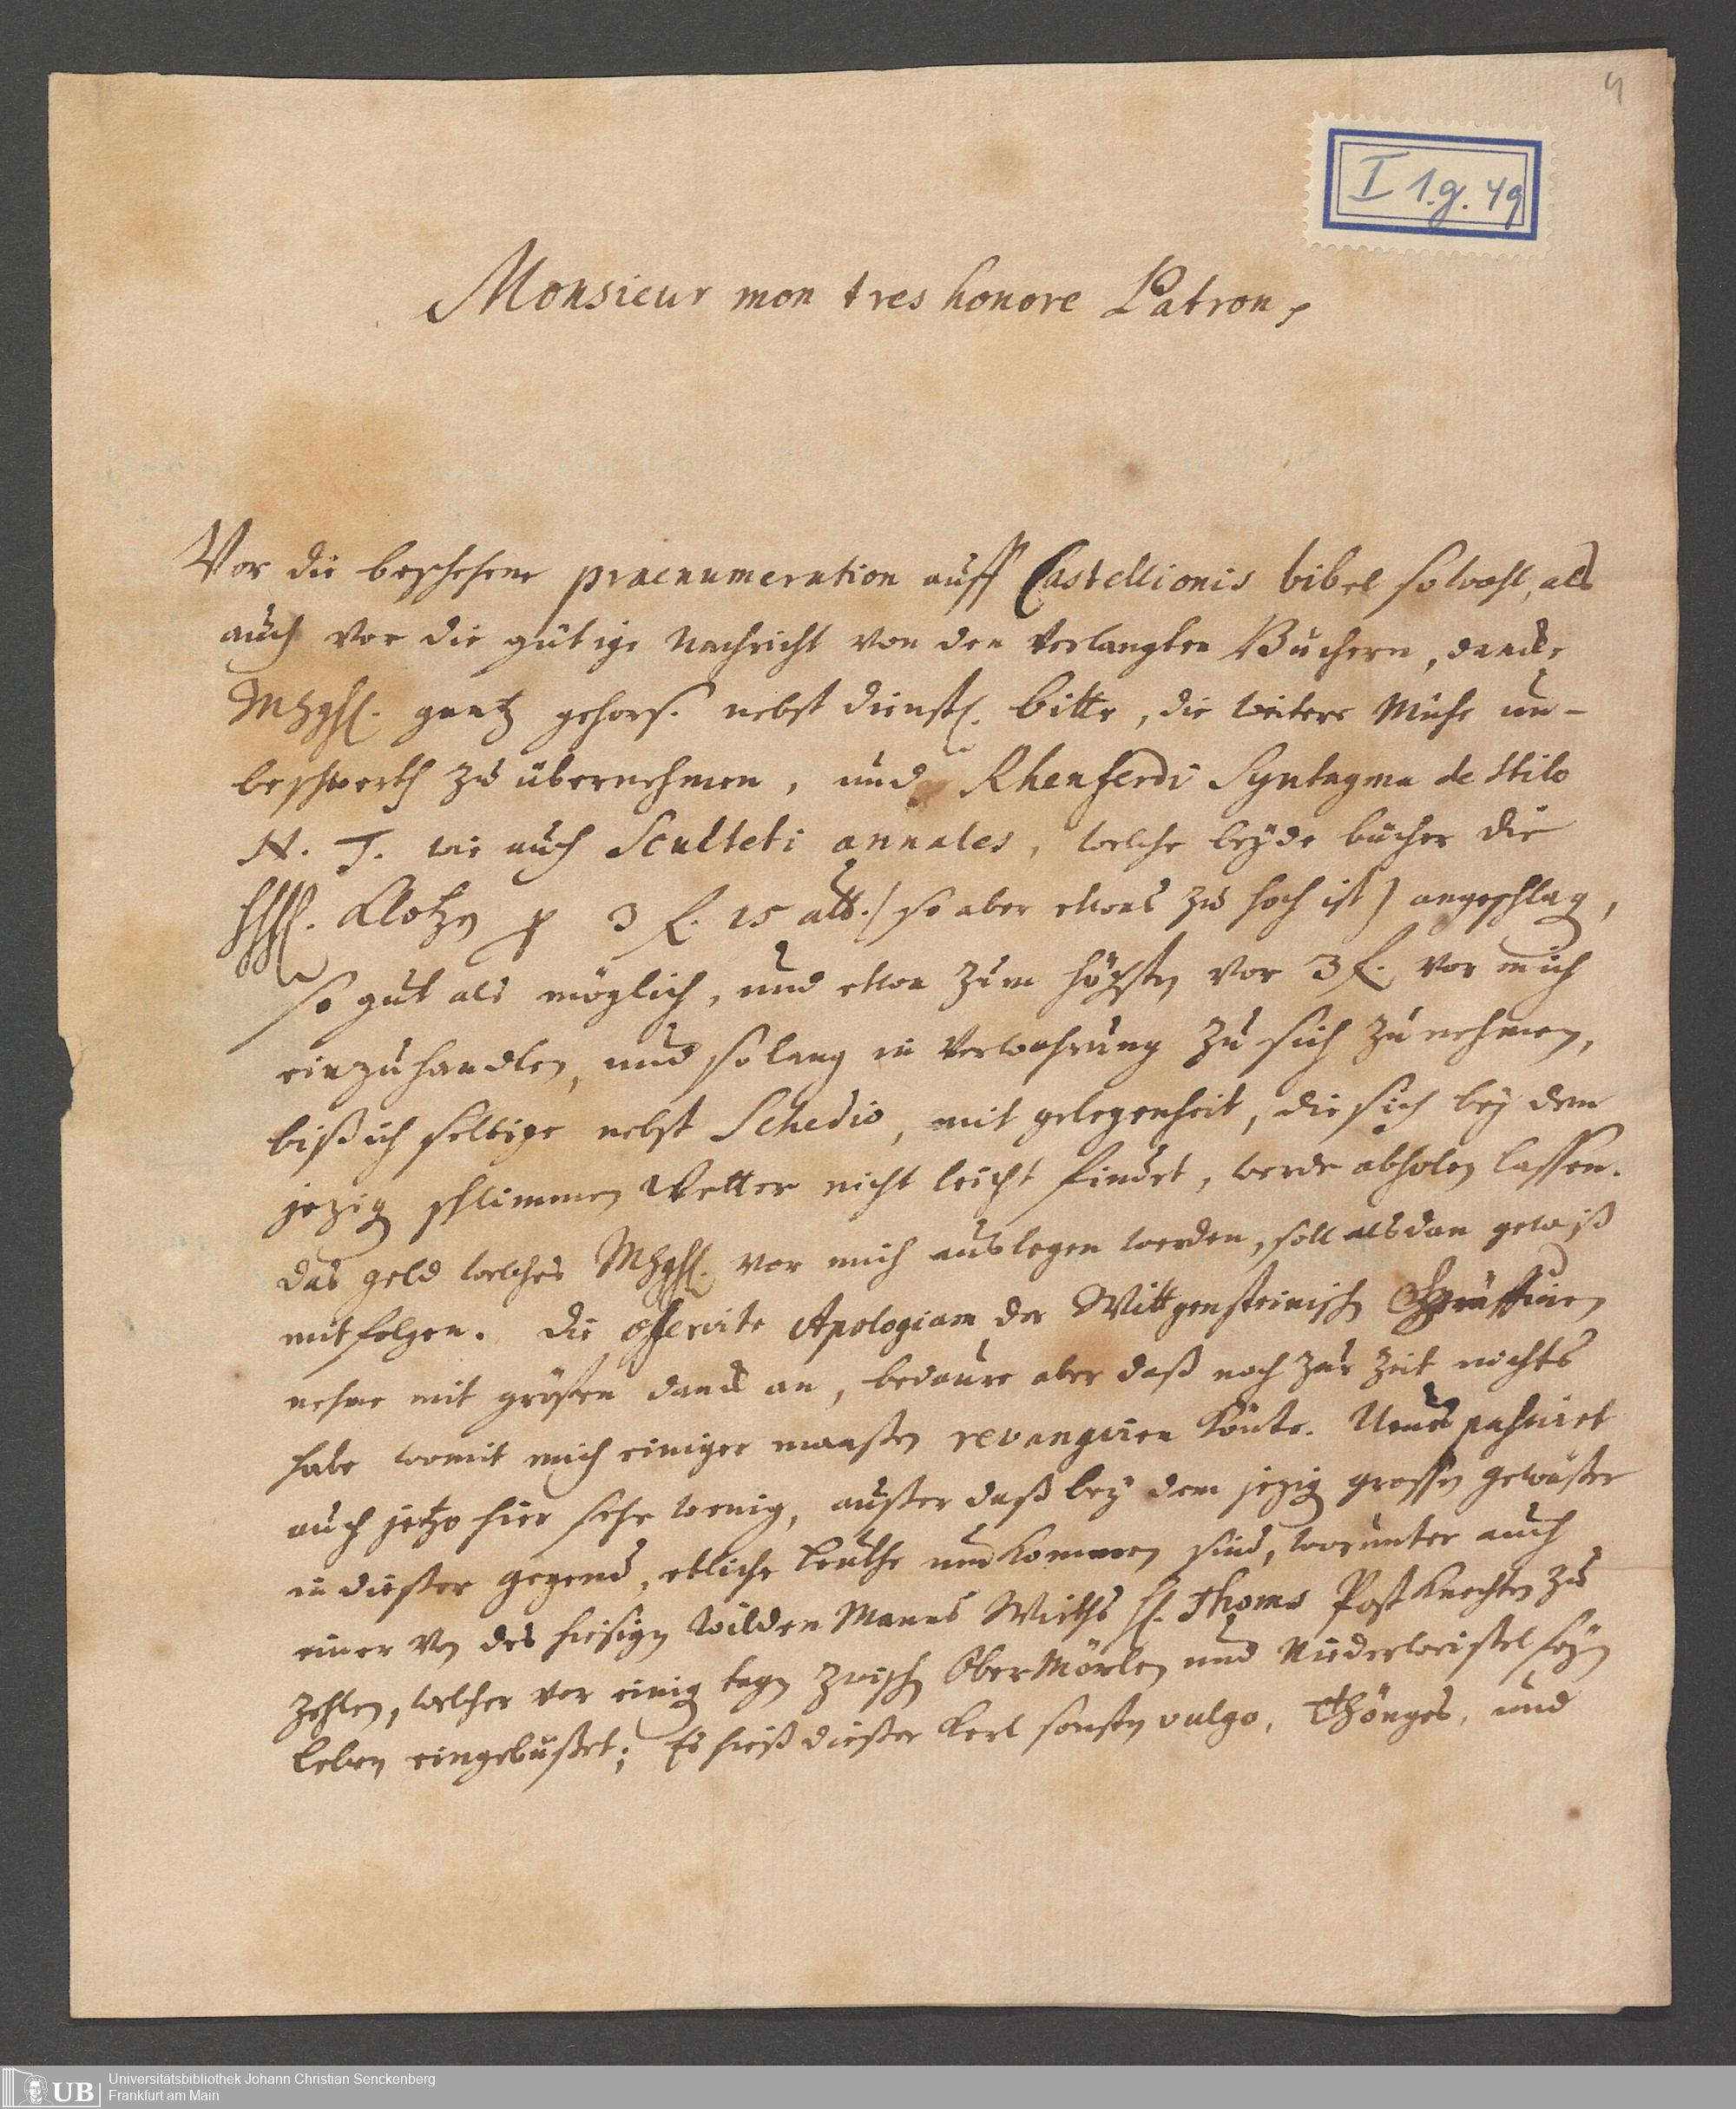 4
I 1.g. 49
Monsieur mon tres honore Patron,
Vor die beschehene praenumeration auff Castellionis bibel sowohl, als
auch vor die gütige Nachricht von den verlangten Büchern, dancke
MhgH. gantz gehors. nebst dienstl. bitte, die weitere Mühe un-
beschwerth zu übernehmen, und Rhenferdi Syntagma de stilo
N. T. wie auch Sculteti annales, welche beyde bücher die
Klotzy p 3 f. 15 alb. (so aber etwas zu hoch ist) angeschlag,
so gut als möglich, und etwa zum höchsten vor 3 f. vor mich
einzuhandlen, und solang in Verwahrung zu sich zu nehmen,
biß ich selbige nebst Schedio, mit gelegenheit, die sich bey dem
jezig schlimmen Wetter nicht leicht findet, werde abholen lassen.
das geld welches MhgH. vor mich auslegen werden, soll alsdan gewiß
mitfolgen. Die offerirte Apologiam der Wittgensteinisch
nehme mit großen danck an, bedaure aber daß noch zur Zeit nichts
habe womit mich einiger maaßen revangiren könte. Neues pahsiret
auch jetzo hier sehr wenig, außer daß bey dem jezig grossen gewäßer
in dießer gegend, etliche Leuthe umkommen sind, worunter auch
einer von des hiesigen wilden Manns Wirths H. Thoms Postknechten zu
zehlen, welcher vor einig tagen zwisch OberMörlen und Niederweisel seyn
Leben eingebüßet; Es hieß dießer Kerl sonsten vulgo, Thönges, und
UB
Universitätsbibliothek Johann Christian Senckenberg
Frankfurt am Main